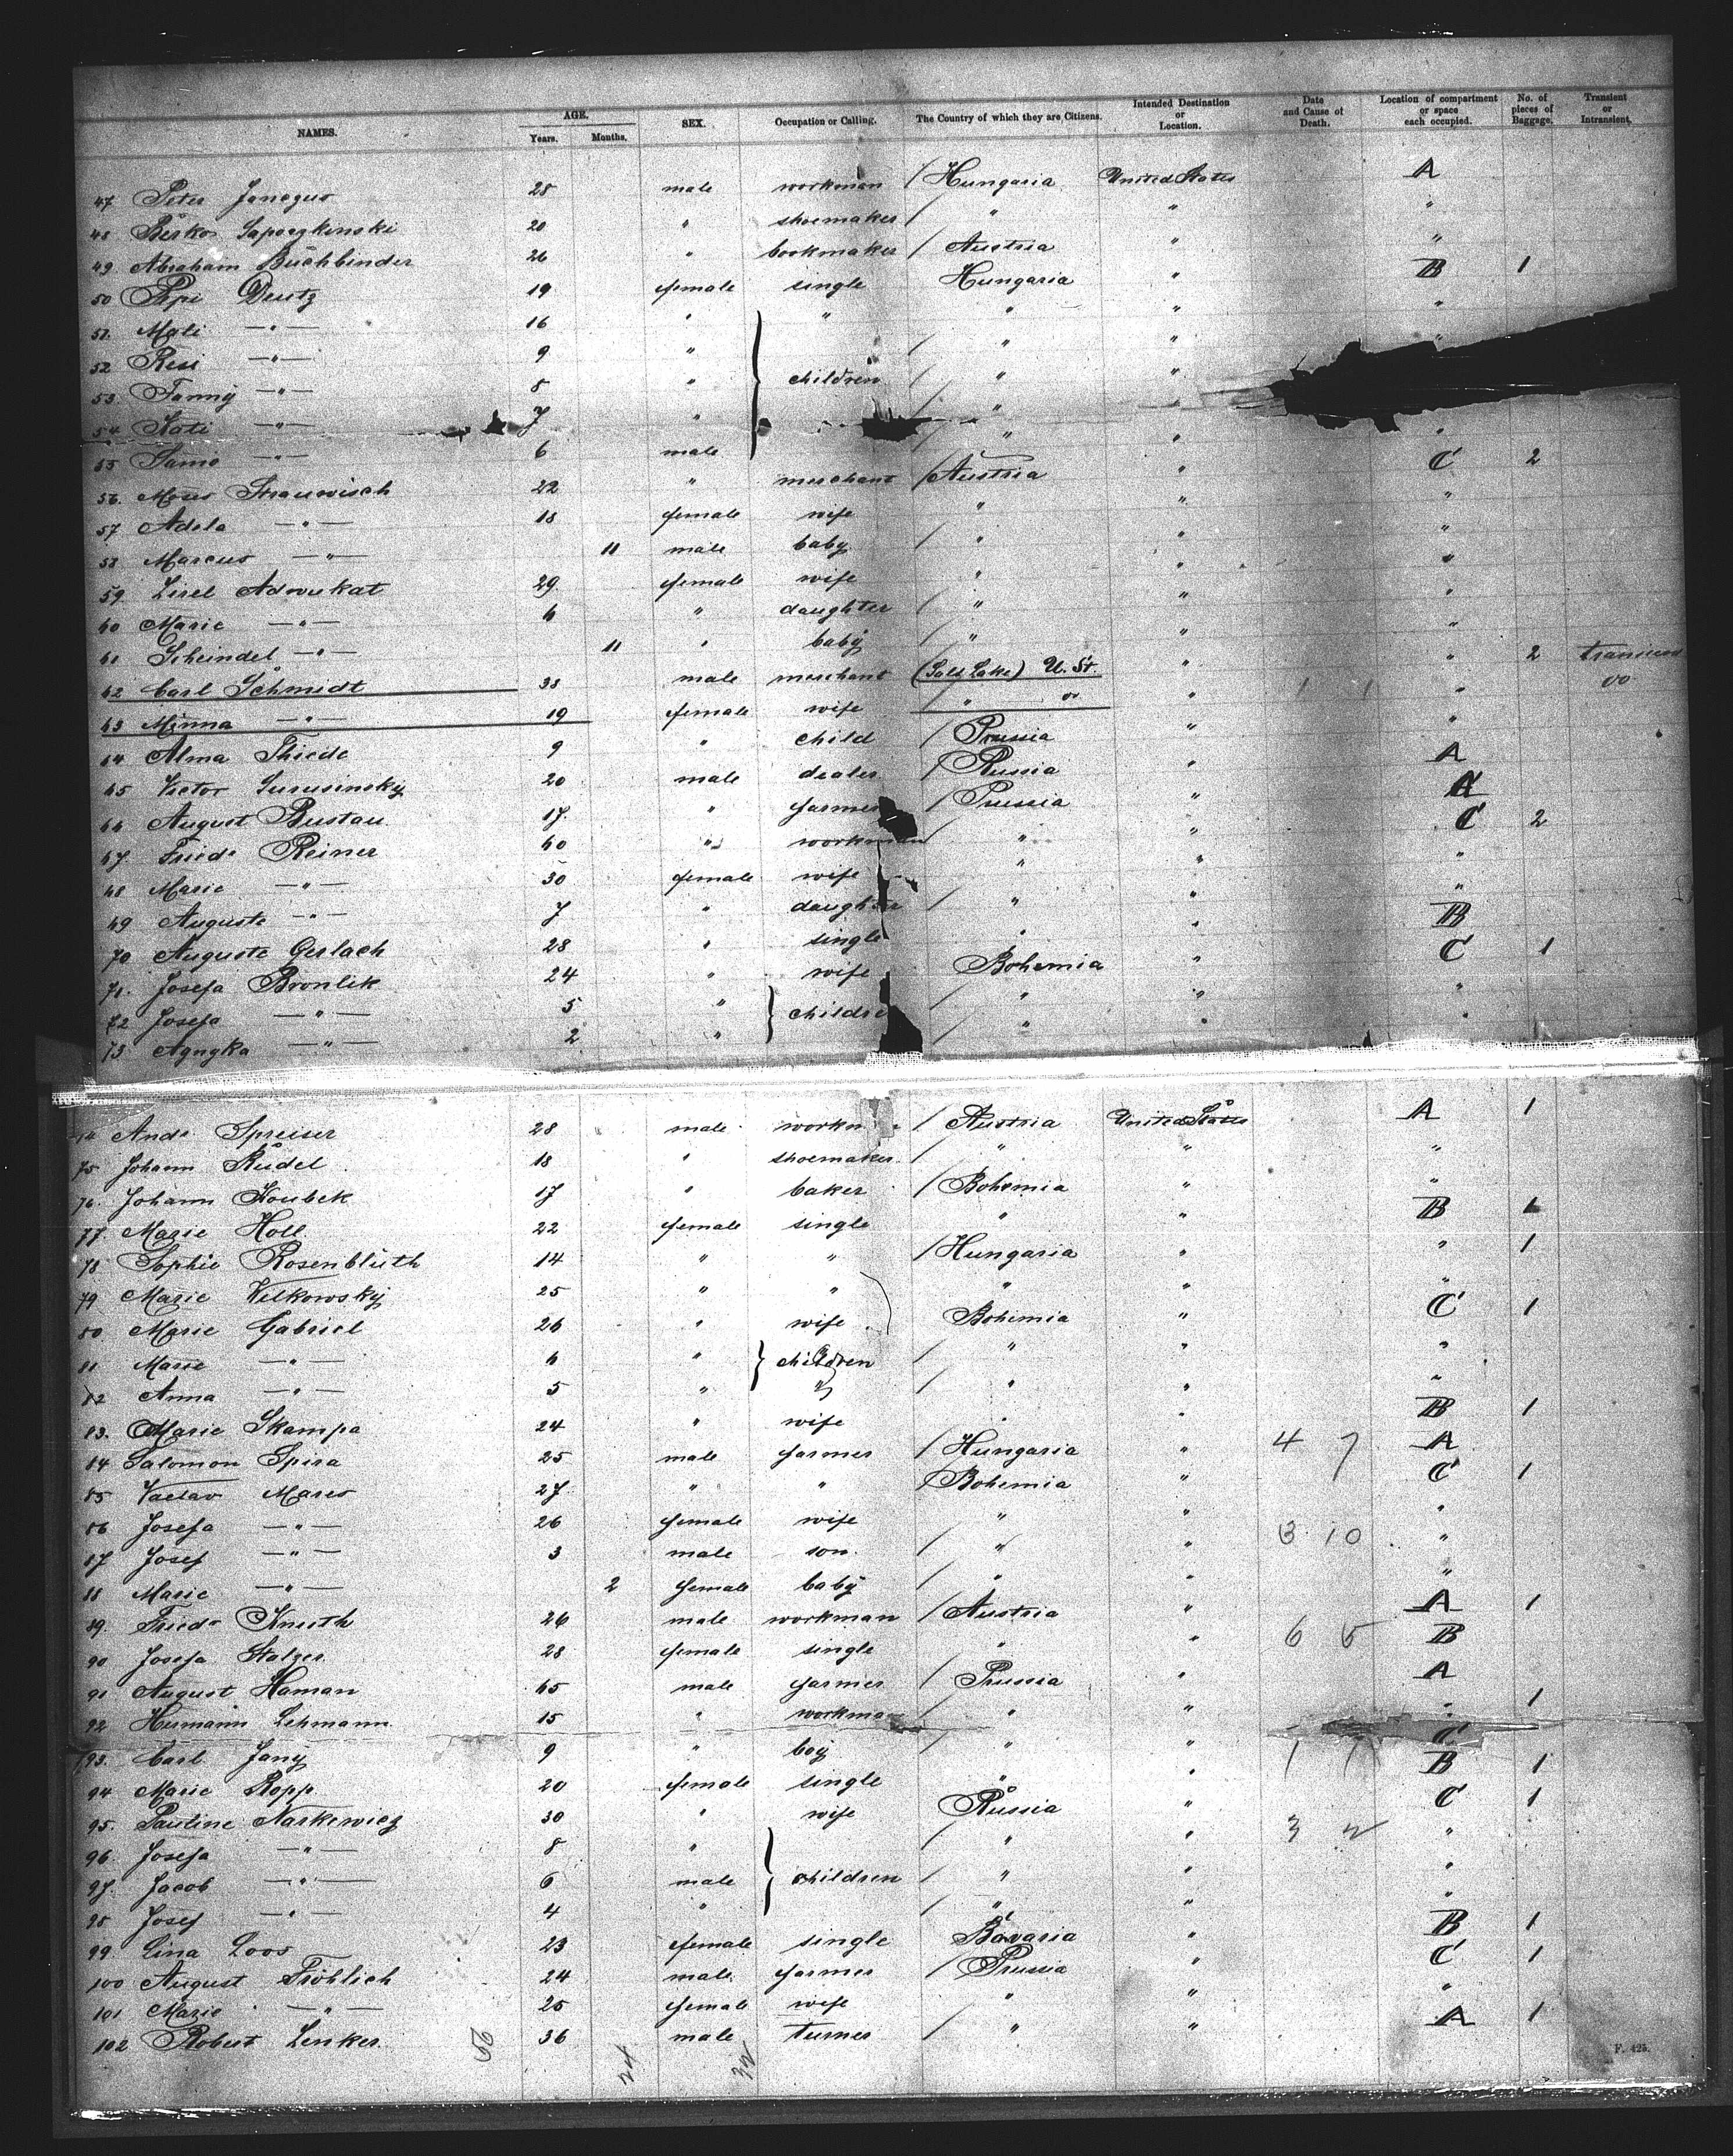 NAMES. AGE. Years. Months. SEX. Occupation or Calling. The Country of which they are Citizens. Intended Destination or Location. Date and Cause of Death. Location of compartment or space each occupied. No. of pieces of Baggage. Transient or Intransient.
47 Peter 28 male workman / Hungaria United States A
48 20 " shoemaker / " " "
49 Abraham Buchbinder 26 " bookmaker / Austria " "
50 Pepi Deutz 19 female single Hungaria " B 1
51. Mali —"— 16 " " " " "
52 Resi —"— 9 " / " " "
53. Fanny —"— 8 " children / " "
54 Kati —"— 7 " / " "
55 Samo —"— 6 male / " " "
56. Moses 22 " merchant / Austria " C 2
57 Adela —"— 18 female wife " " "
58 Marcus —"— 11 male baby / " " "
59 29 female wife " " "
60 Marie —"— 6 " daughter / " " "
61 Scheindel —"— 11 " baby / " " "
62 Carl Schmidt 38 male merchant (Salt Lake) U. St. " " 2
63 Minna —"— 19 female wife " " "
64 Alma Thiede 9 " child / Prussia " "
65 Victor 20 male dealer / Russia " A
66 August 17. " farmer / Prussia " A
67 Friedr Reiner 40 " workman " " C 2
68 Marie —"— 30 female wife " " "
69 Auguste —"— 7 " daughter / " " "
70 Auguste Gerlach 28 " single " " B
71. Josefa Bronlik 24 " wife Bohemia " C 1
72 Josefa —"— 5 " children / " " "
73 —"— 2 " / " " "
74 Andr Spreiser 28 male workman / Austria United States A 1
75 Johann Rudel 18 " shoemaker. / " " "
76. Johann Koubek 17 " baker / Bohemia " "
77 Marie Holl 22 female single " " B 1
78 Sophie Rosenblüth 14 " " / Hungaria " " 1
79 Marie 25 " " " " "
80 Marie Gabriel 26 " wife Bohemia " C 1
81 Marie —"— 6 " children / " " "
82 Anna —"— 5 " " / " " "
83. Marie Skampa 24 " wife " " B 1
84 Salomon Spira 25 male farmer / Hungaria " 4 7 A
85 Vaclav Mares 27 " " / Bohemia " C 1
86 Josefa —"— 26 female wife " " "
87 Josef —"— 3 male son. / " " 3 10 "
88 Marie —"— 2 female baby / " " "
89. Friedr Knuth 26 male workman / Austria " A 1
90 Josefa Stalzer 28 female single " " 6 5 B
91 August Haman 65 male farmer / Prussia " A
92 Hermann Lehmann. 15 " workman " " " 1
93. Carl Jany 9 " boy / " " C
94 Marie Ropp 20 female single " " 1 1 B 1
95. Pauline Narkewicz 30 " wife Russia " C 1
96. Josefa —"— 8 " / " " 3 2 "
97. Jacob —"— 6 male children / " " "
98 Josef —"— 4 " / " " "
99 Lina Loos 23 female single Bavaria " B 1
100 August Fröhlich 24 male. farmer / Prussia " C 1
101 Marie —"— 25 female wife " " "
102 Robert Lenker. 36 male turner / " " A 1
24 32
F. 425.